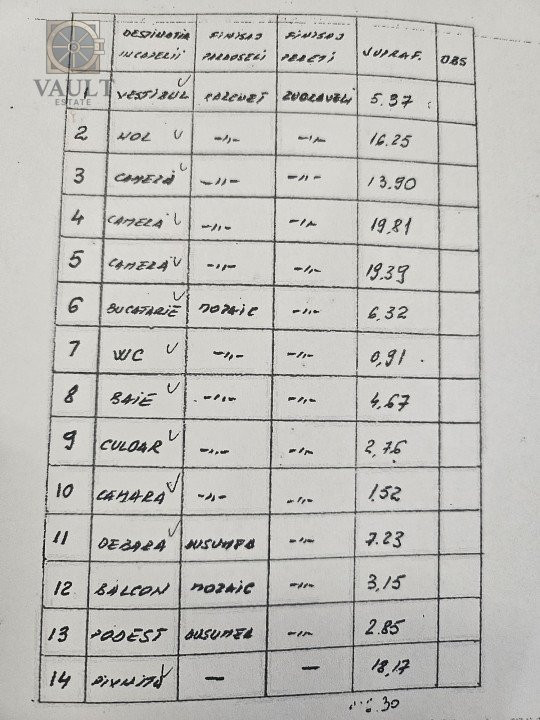 VAULT
ESTATE
DESTINATIA INCAPERII FINISAJ PARDOSELI FINISAJ PERETI SUPRAF. OBS
1 VESTIBUL PARCHET ZUGRAVELI 5.37
2 HOL -"- -"- 16.25
3 CAMERĂ -"- -"- 13.90
4 CAMERĂ -"- -"- 19,81
5 CAMERĂ -"- -"- 19.39
6 BUCATARIE MOZAIC -"- 6,32
7 WC -"- -"- 0,91
8 BAIE -"- -"- 4,67
9 CULOAR -"- -"- 2,76
10 CAMARA -"- -"- 1.52
11 DEBARA DUSUMEA -"- 7.23
12 BALCON MOZAIC -"- 3,15
13 PODEST DUSUMEA -"- 2.85
14 PIVNITĂ — — 18,17